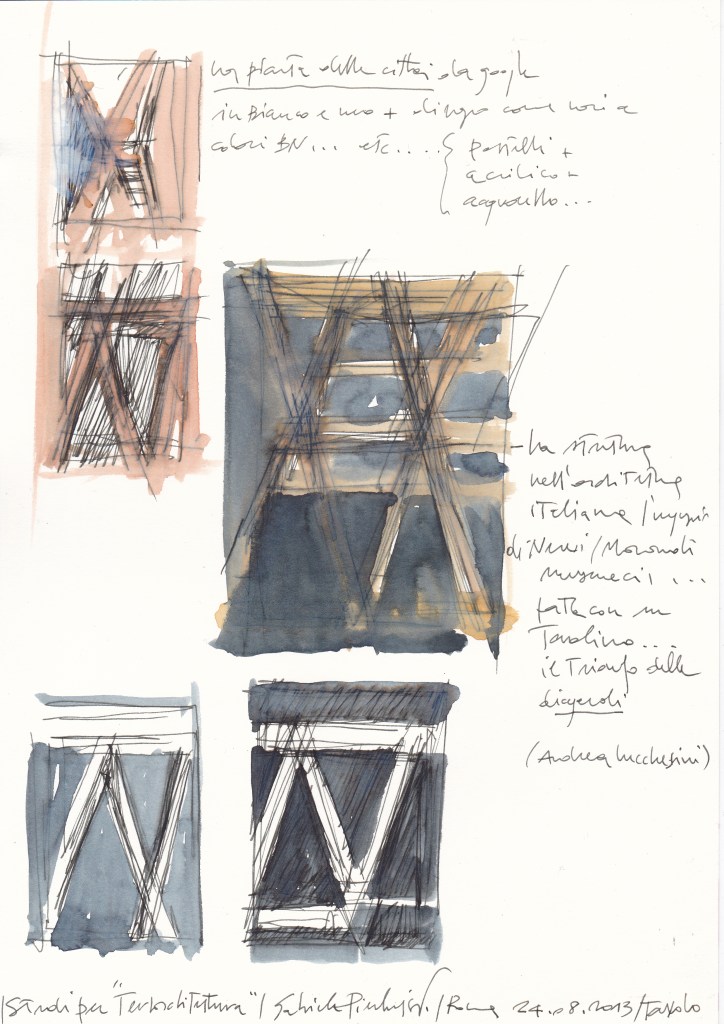 una pianta della città da google
in bianco e nero + disegno come
colori BN... etc....
pastelli +
acrilico +
acquarello...
La struttura
nell'architettura
italiana / ingegneri
di Nervi / Morandi
musmeci, ...
fatta con un
Tavolino...
il Trionfo delle
diagonali
(Andrea Lucchesini)
Studi per "Terrarchitettura" / / Roma 24.08.2013 / Tavolo